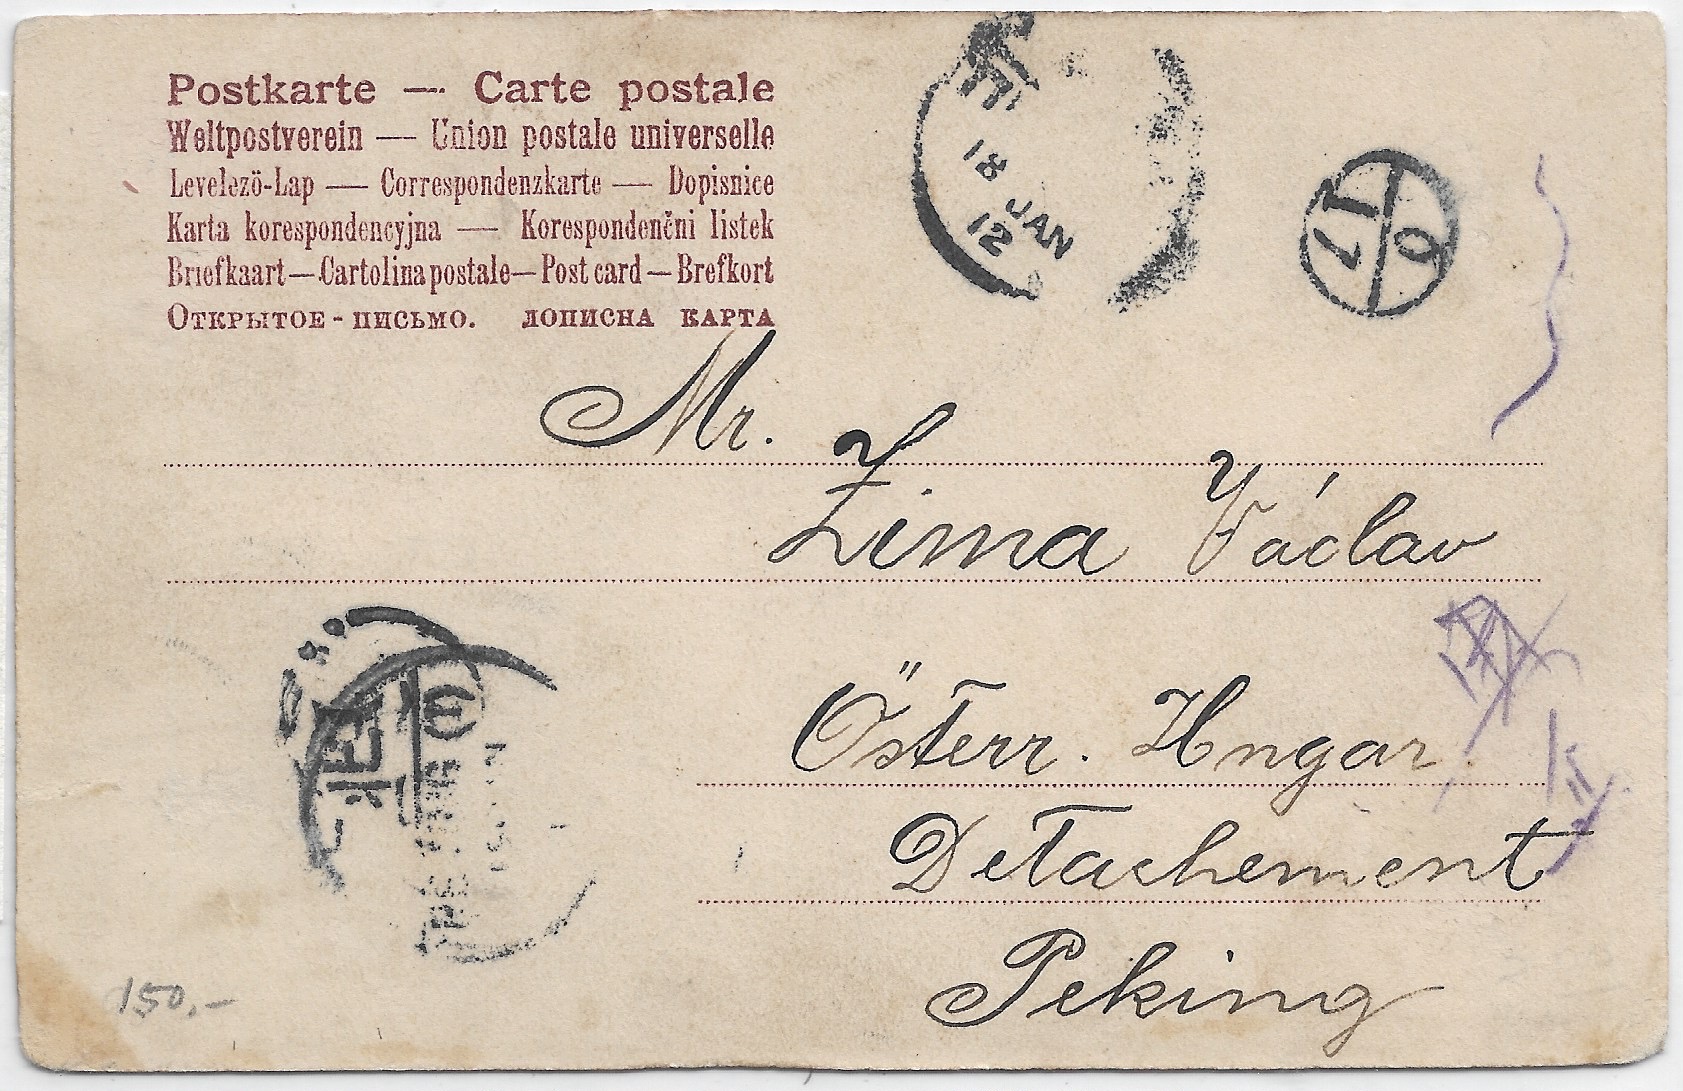 Postkarte — Carte postale
Weltpostverein — Union postale universelle
Levelezö-Lap — Correspondenzkarte — Dopisnice
Karta korespondencyjna — Korespondenčni listek
Briefkaart — Cartolina postale — Post card — Brefkort
ОТКРЫТОЕ - ПИСЬМО. ДОПИСНА КАРТА
18 JAN
12
Mr.
Zima Václav
Österr. Hngar.
Detachement
Peking
150,-